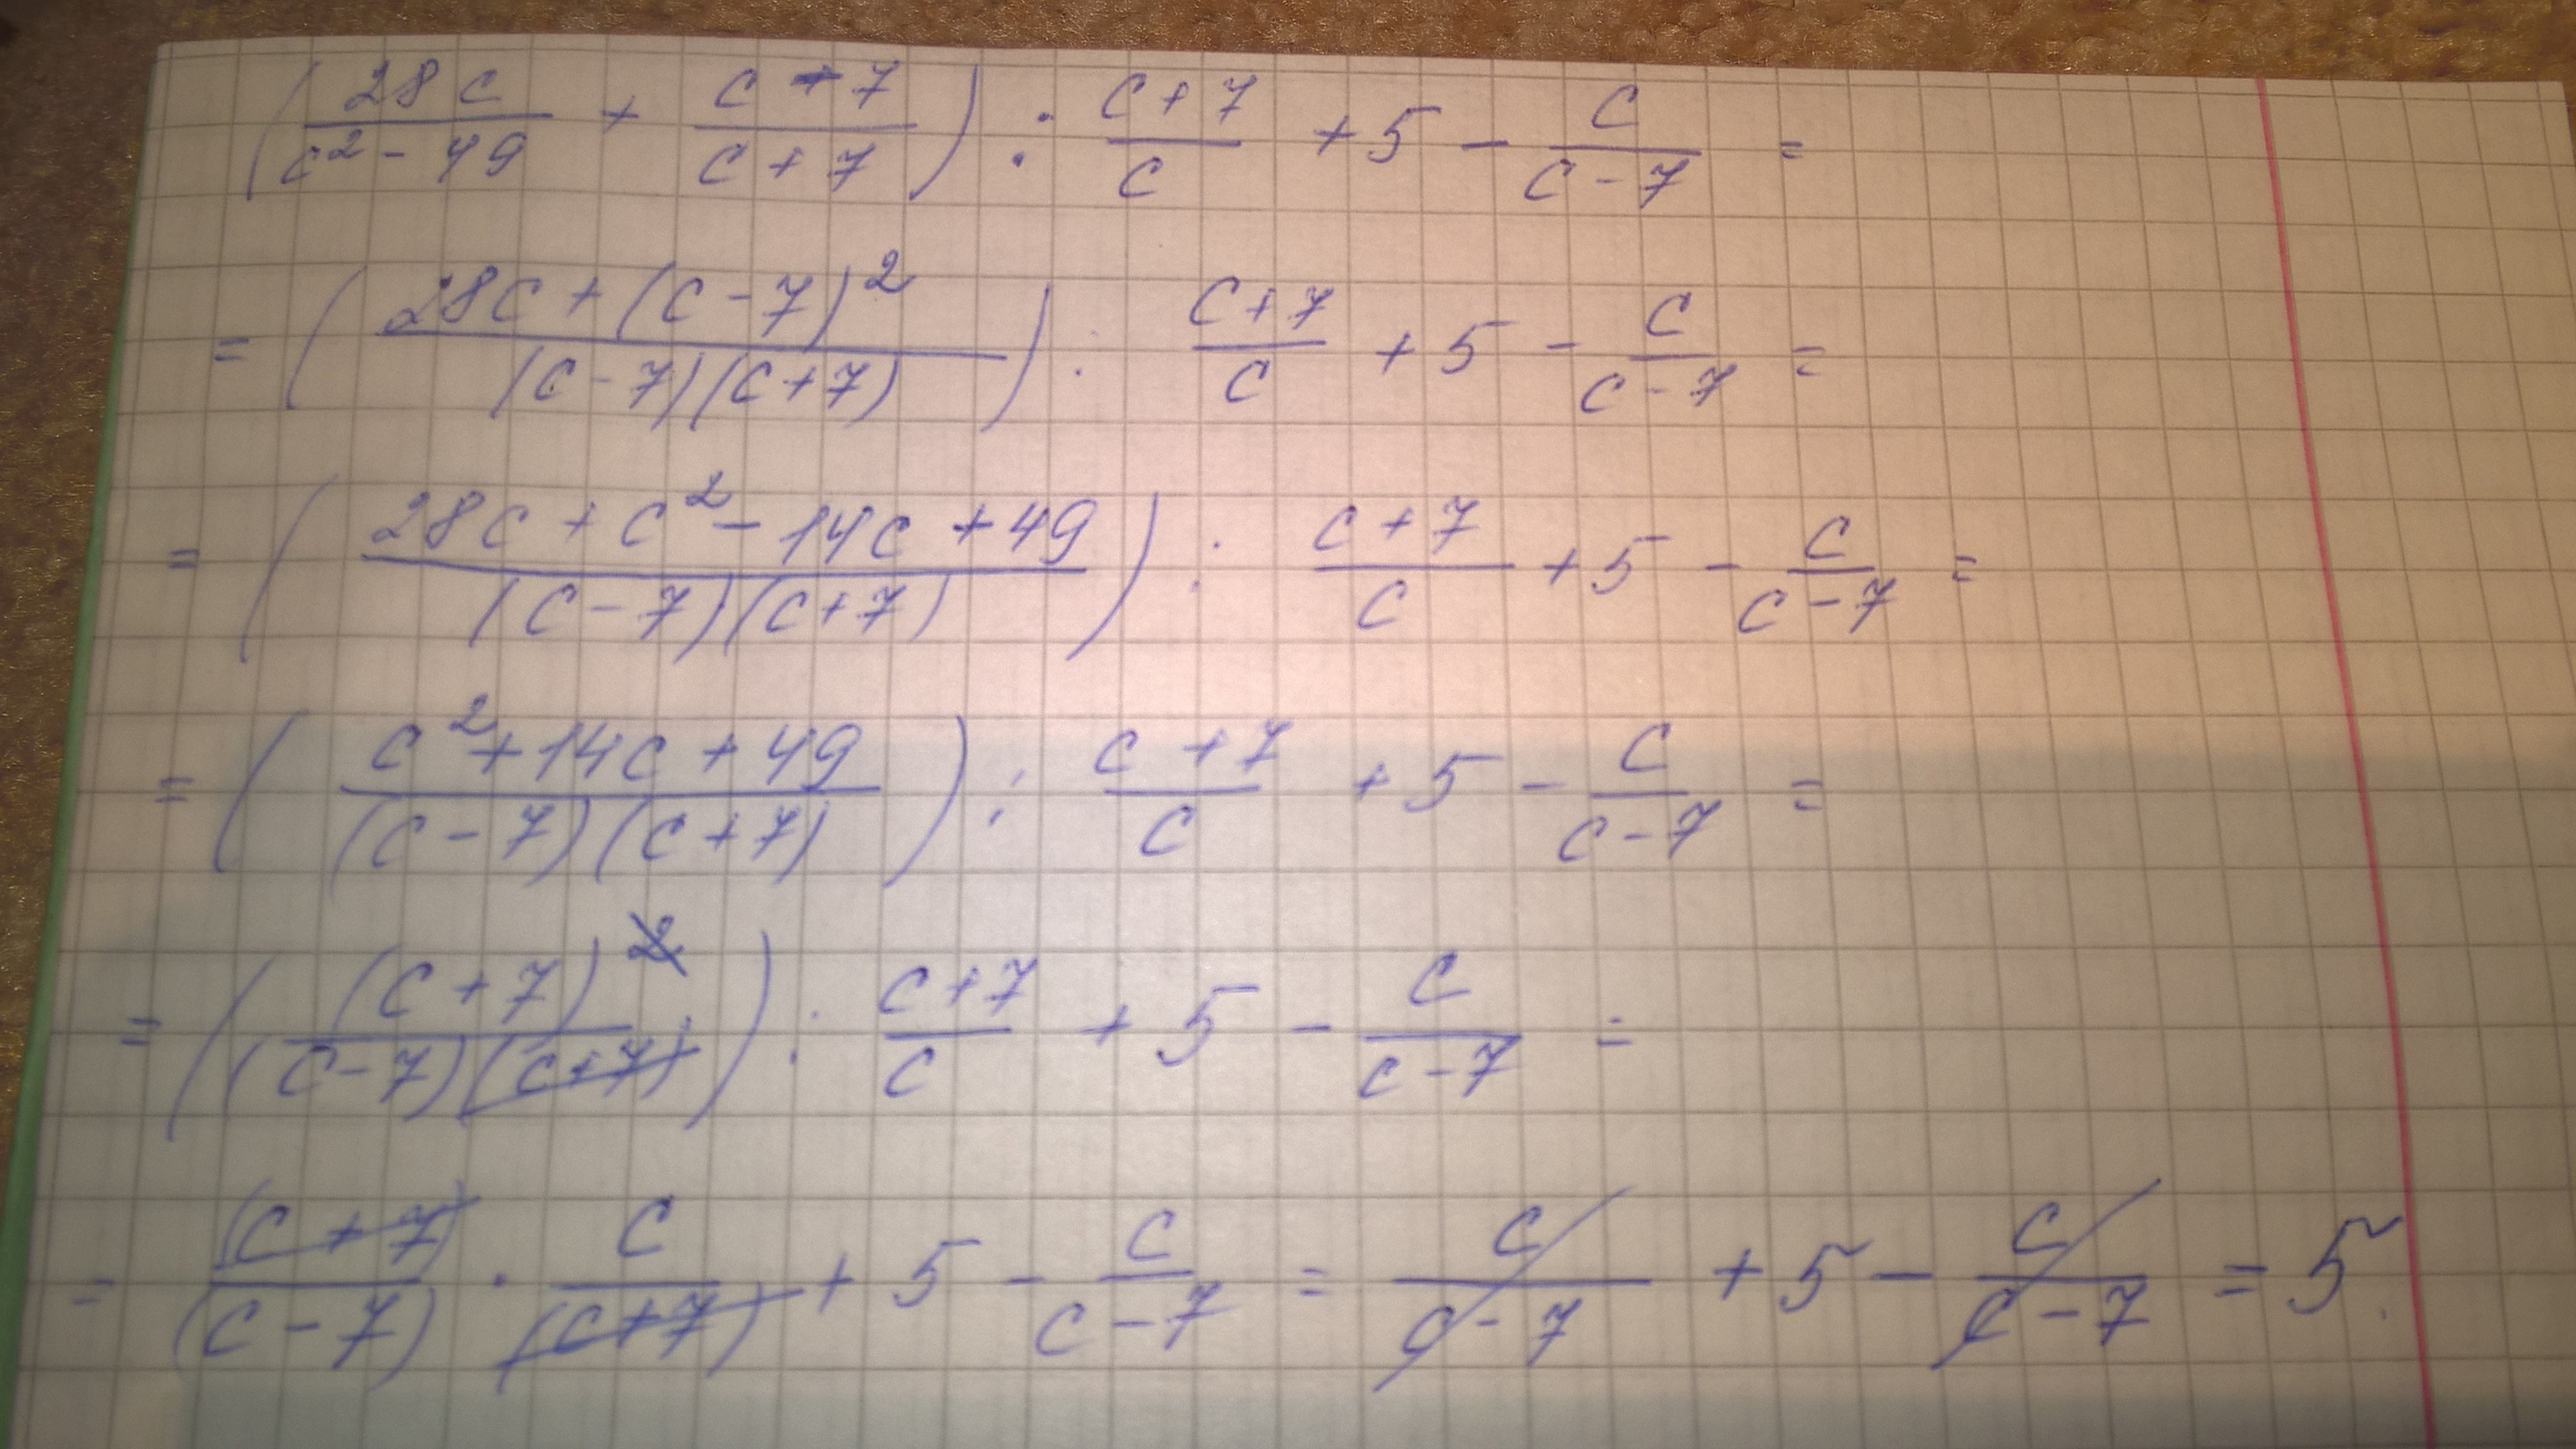 (28c/(c² - 49) + (c - 7)/(c + 7)) : (c + 7)/c + 5 - c/(c - 7) =
= ((28c + (c - 7)²)/((c - 7)(c + 7))) : (c + 7)/c + 5 - c/(c - 7) =
= ((28c + c² - 14c + 49)/((c - 7)(c + 7))) : (c + 7)/c + 5 - c/(c - 7) =
= ((c² + 14c + 49)/((c - 7)(c + 7))) : (c + 7)/c + 5 - c/(c - 7) =
= ((c + 7)²/((c - 7)(c + 7))) : (c + 7)/c + 5 - c/(c - 7) =
= (c + 7)/(c - 7) · c/(c + 7) + 5 - c/(c - 7) = c/(c - 7) + 5 - c/(c - 7) = 5.